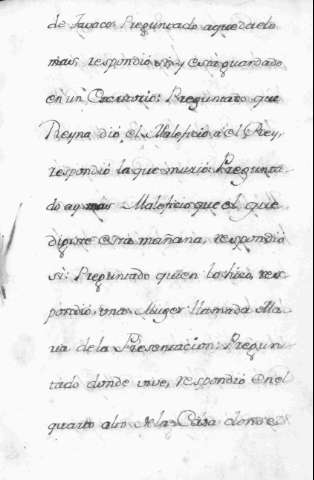 de Tavaco: Preguntado aqued esto
mas, respondió si, y está guardado
en un Escritorio: Preguntado que
Reyna dió el Maleficio a el Rey,
respondió la que murió: Pregunta-
do ay mas Maleficio que el que
digiste esta mañana, respondió
si: Preguntado quien lo hizo, res-
pondió, una Muger llamada Ma-
ria de la Presentacion: Pregun-
tado donde vive, respondió en el
quarto alto de la Casa